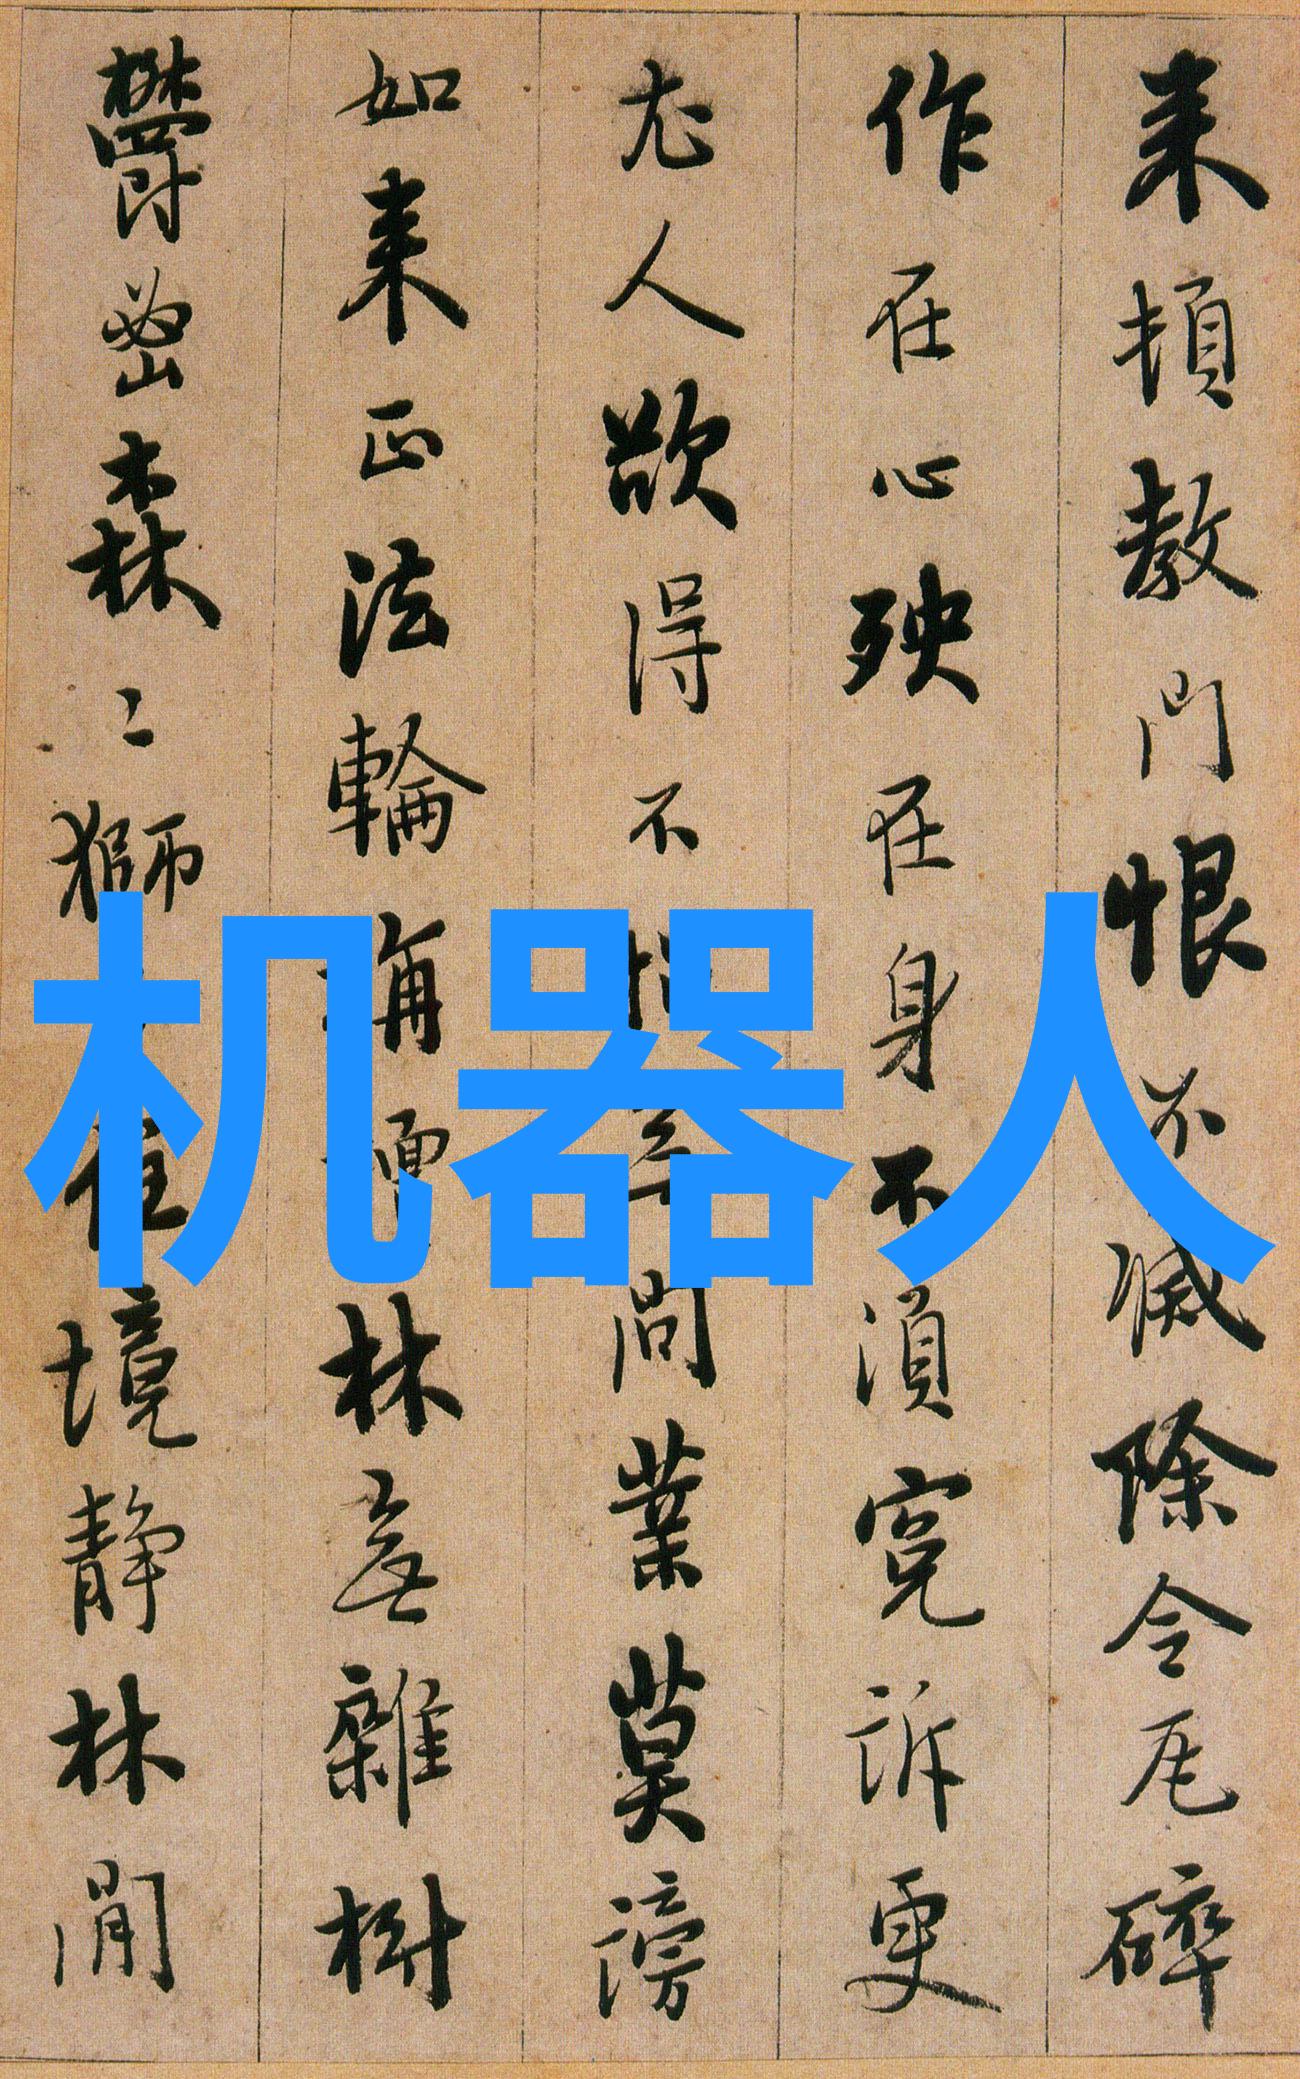 来頓教門恨不滅除令瓦碎
作在心殃在身不須冤訴更
尤人欲得不間業莫謗
如来正法輪林無雜樹
鬱密森〻獅境静林間
机器人